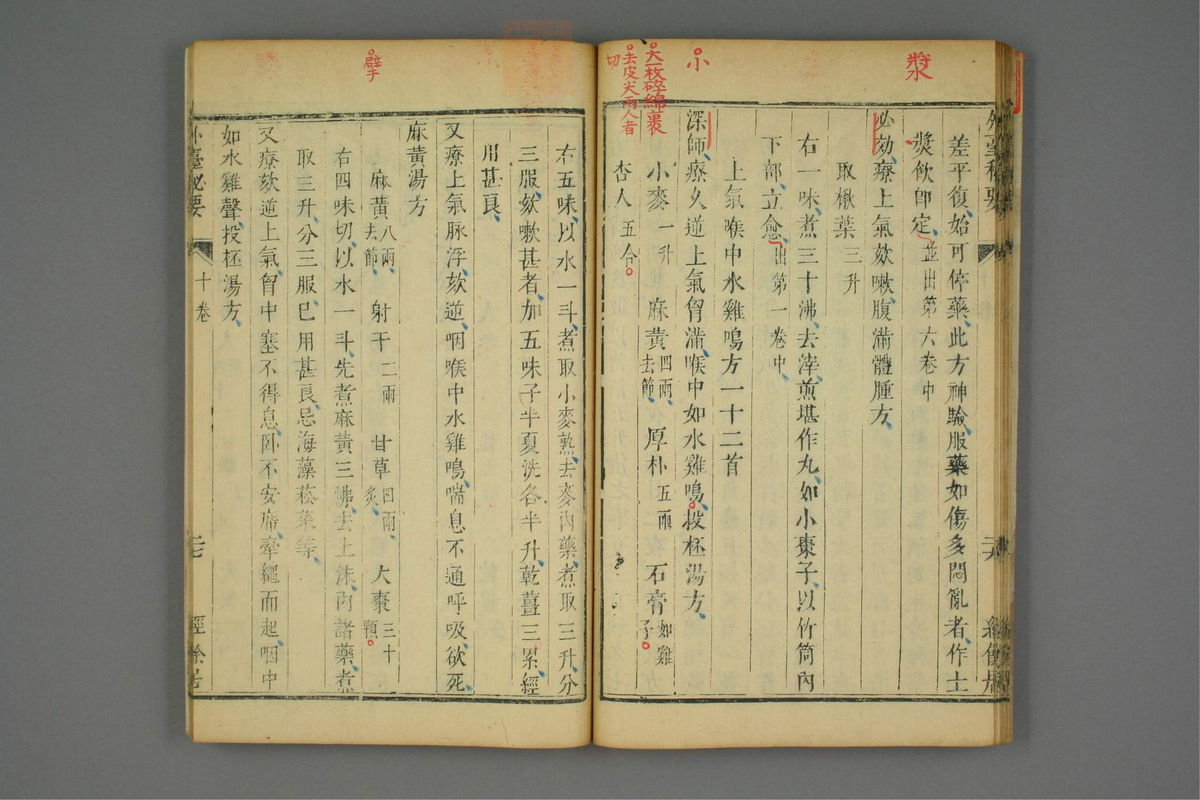 漿
小
大一枚碎綿裹
去皮尖兩人者
切
外臺秘要
差平復始可停藥此方神驗服藥如傷多悶亂者作土
漿飲即定並出第六卷中
必効療上氣欬嗽腹滿體腫方
取楸葉三升
右一味煮三十沸去滓煎堪作丸如小棗子以竹筒內
下部立愈出第一卷中
上氣喉中水雞鳴方一十二首
深師療久逆上氣胷滿喉中如水雞鳴投杯湯方
小麥一升 麻黃四兩去節 厚朴五兩 石膏如雞子
杏人五合
擘
右五味以水一斗煮取小麥熟去麥內藥煮取三升分
三服欬嗽甚者加五味子半夏洗各半升乾薑三累經
用甚良
又療上氣脉浮欬逆咽喉中水雞鳴喘息不通呼吸欲死
麻黃湯方
麻黃八兩去節 射干二兩 甘草四兩炙 大棗三十顆
右四味切以水一斗先煮麻黃三沸去上沫內諸藥煮
取三升分三服已用甚良忌海藻菘菜等
又療欬逆上氣胷中塞不得息卧不安席牽繩而起咽中
如水雞聲投杯湯方
外臺秘要 十卷 經餘居